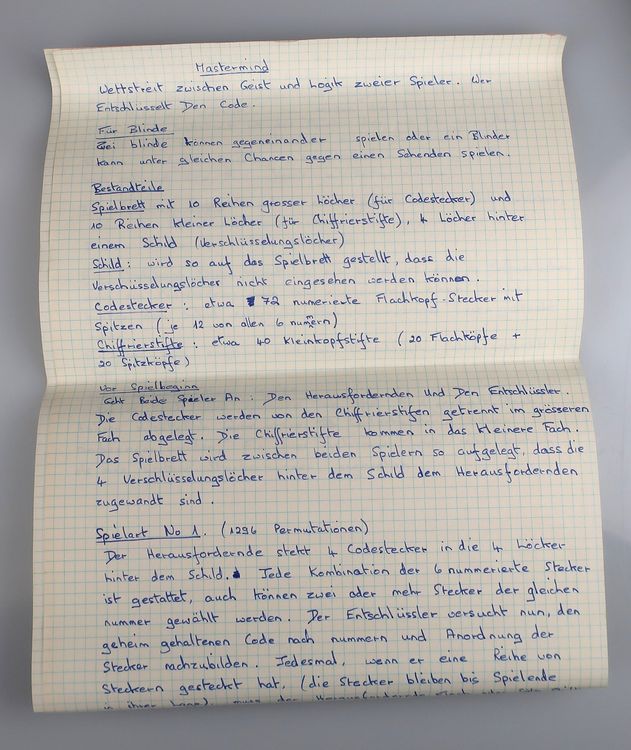 Mastermind
Wettstreit zwischen Geist und Logik zweier Spieler. Wer
Entschlüsselt Den Code.
Für Blinde
Zwei blinde können gegeneinander spielen oder ein Blinder
kann unter gleichen Chancen gegen einen Sehenden spielen.
Bestandteile
Spielbrett mit 10 Reihen grosser höcher (für Codestecker) und
10 Reihen kleiner Löcher (für Chiffrierstifte), 4 Löcher hinter
einem Schild (Verschlüsselungslöcher)
Schild: wird so auf das Spielbrett gestellt, dass die
Verschüsselungslöcher nicht eingesehen werden können.
Codestecker: etwa 72 numerierte Flachkopf-Stecker mit
Spitzen (je 12 von allen 6 nummern)
Chiffrierstifte: etwa 40 Kleinkopfstifte (20 Flachköpfe +
20 Spitzköpfe)
Vor Spielbeginn
Geht Beide Spieler An: Den Herausfordernden Und Den Entschlüssler.
Die Codestecker werden von den Chiffrierstifen getrennt im grösseren
Fach abgelegt. Die Chiffrierstifte kommen in das kleinere Fach.
Das Spielbrett wird zwischen beiden Spielern so aufgelegt, dass die
4 Verschlüsselungslöcher hinter dem Schild dem Herausfordernden
zugewandt sind.
Spielart No 1. (1296 Permutationen)
Der Herausfordernde steckt 4 Codestecker in die 4 Löcker
hinter dem Schild. Jede Kombination der 6 nummerierte Stecker
ist gestattet, auch können zwei oder mehr Stecker der gleichen
nummer gewählt werden. Der Entschlüssler versucht nun, den
geheim gehaltenen Code nach nummern und Anordnung der
Stecker nachzubilden. Jedesmal, wenn er eine Reihe von
Steckern gesteckt hat, (die Stecker bleiben bis Spielende
in ihrer Lage) muss der Herausfordernde